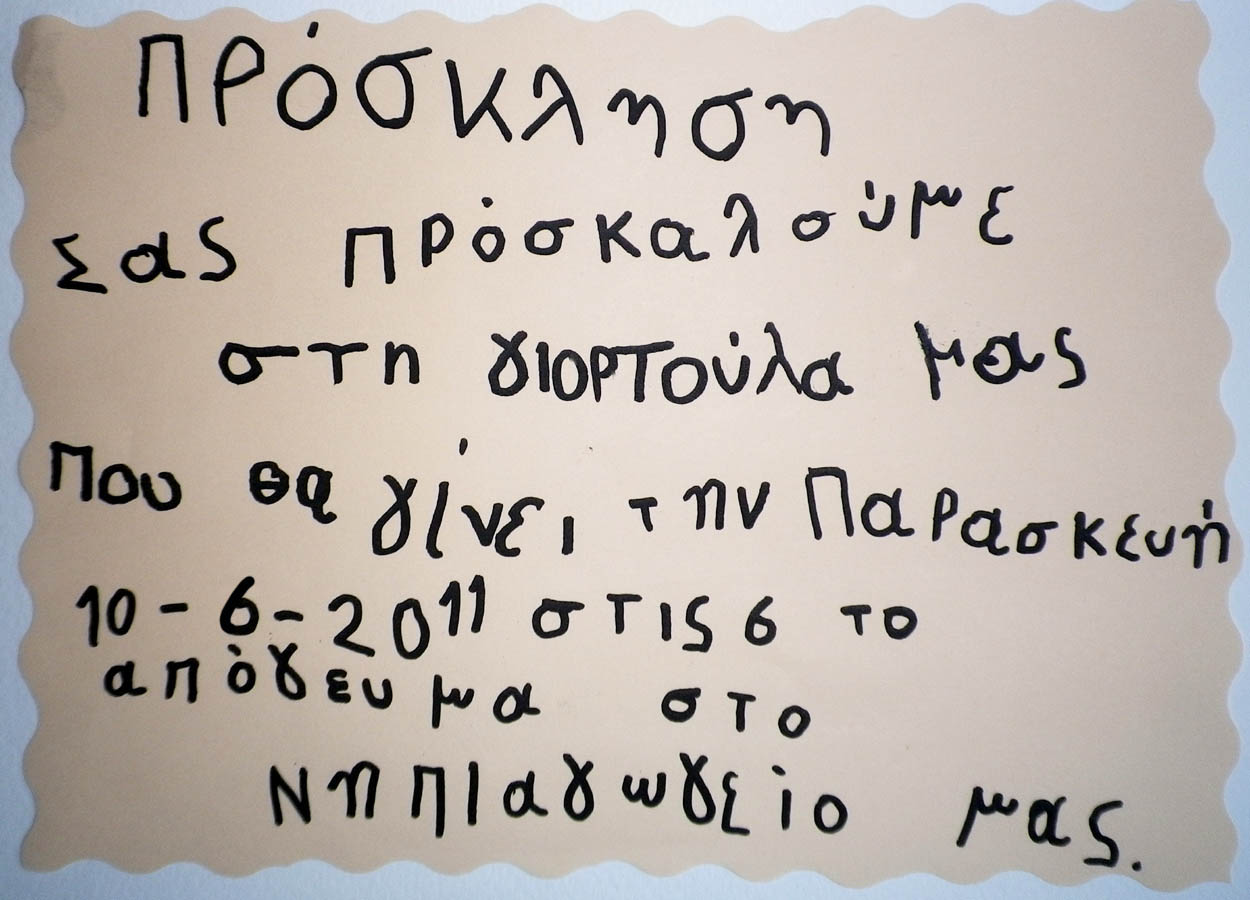 Πρόσκληση
Σας πρόσκαλούμε
στη γιορτούλα μας
Που θα γίνει την Παρασκευή
10-6-2011 στις 6 το
απόγευμα στο
Νηπιαγωγείο μας.